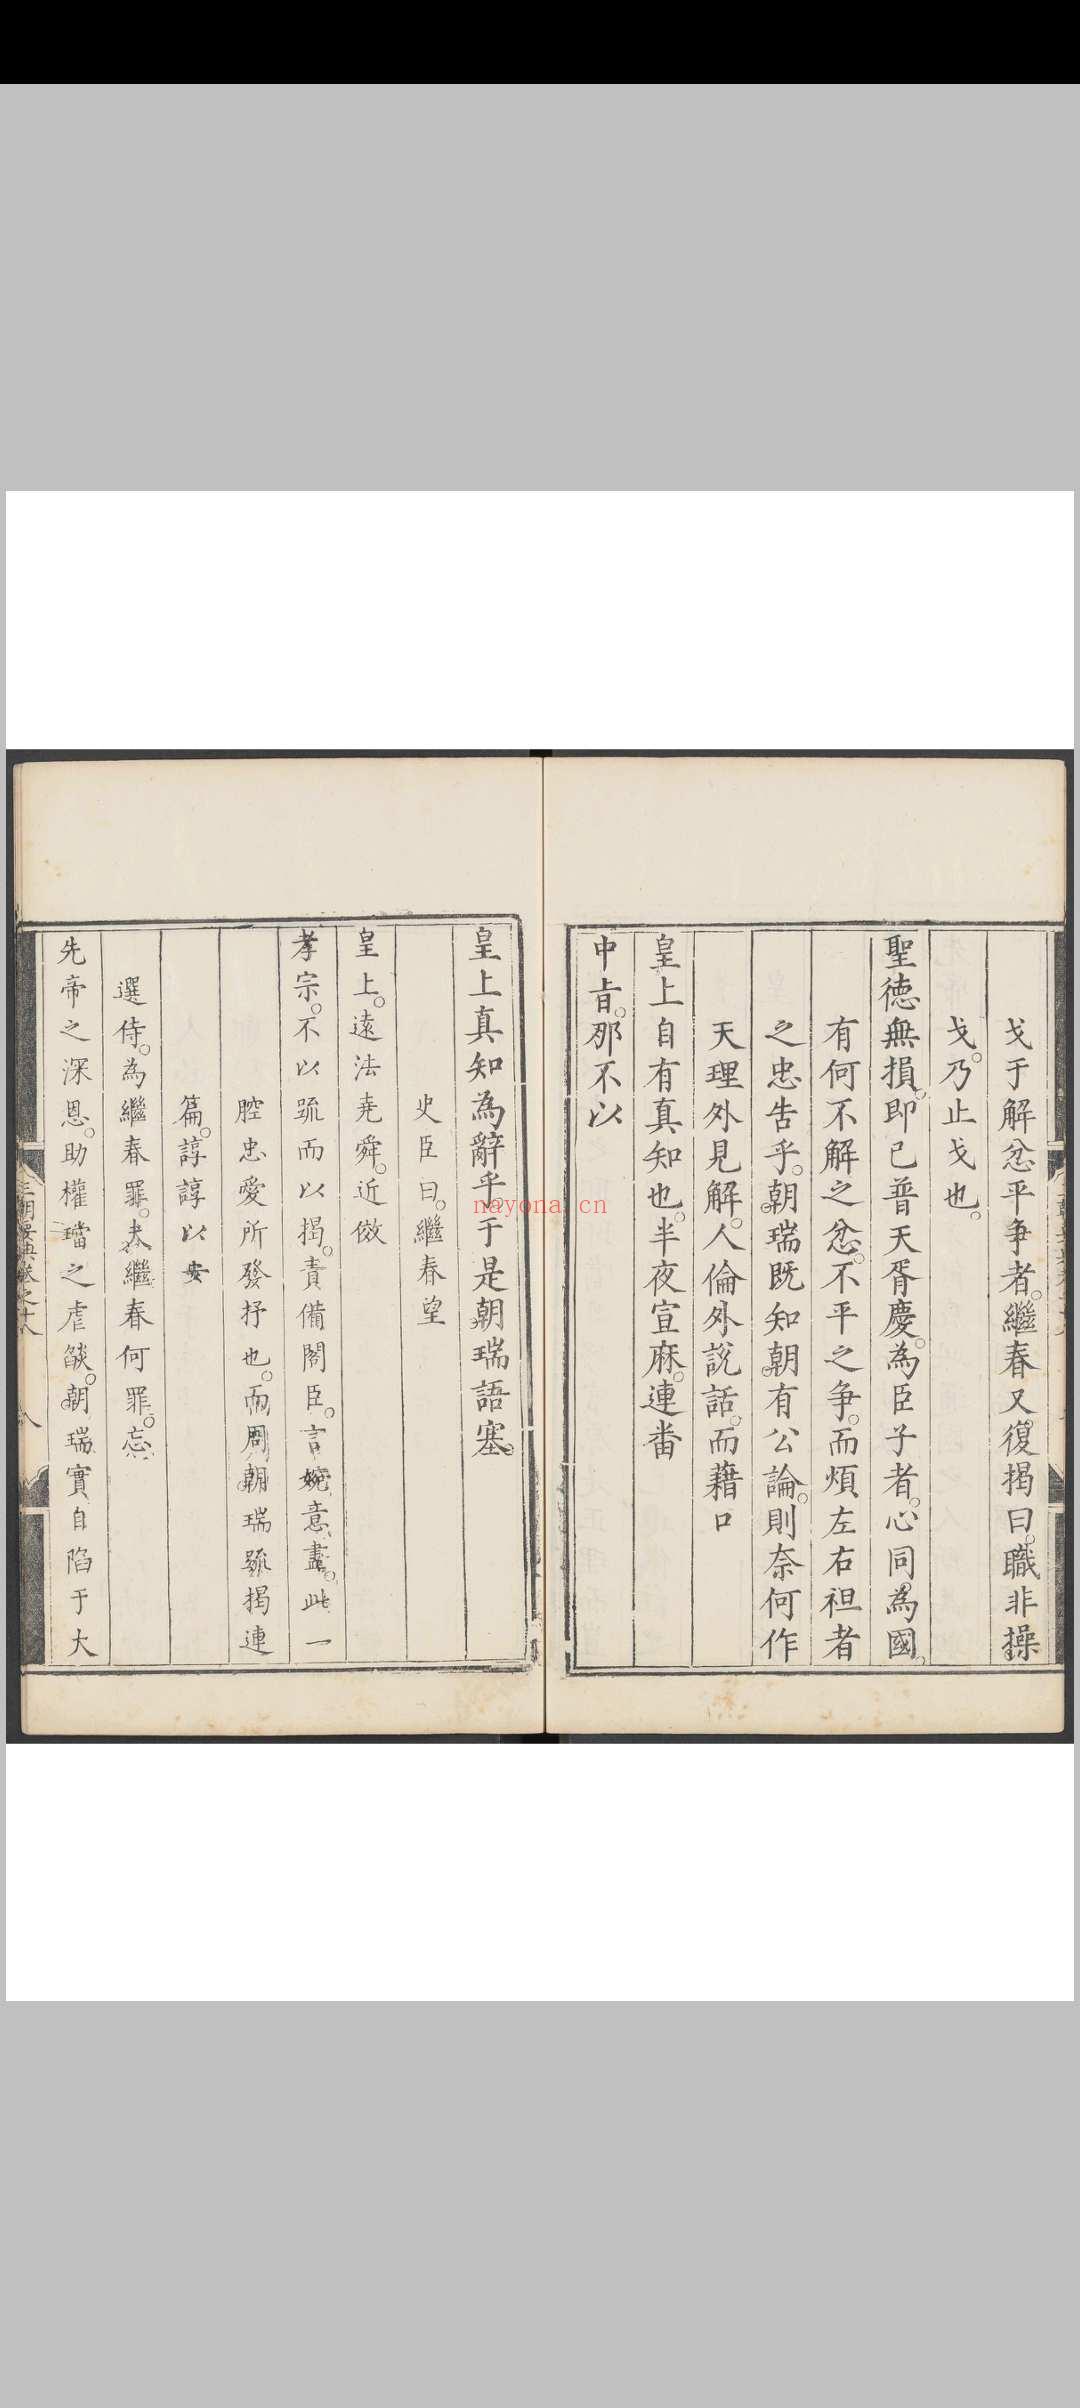 戈于解忿平爭者。繼春又復揭曰。職非操
戈。乃止戈也。
聖德無損。即已普天胥慶。為臣子者。心同為國。
有何不解之忿。不平之爭。而煩左右袒者
之忠告乎。朝瑞既知朝有公論。則奈何作
天理外見解。人倫外說話。而藉口
皇上自有真知也。半夜宣麻。連番
中旨。那不以
皇上真知為辭乎。于是朝瑞語塞。
史臣曰。繼春望
皇上。遠法堯舜。近傚
孝宗。不以疏而以揭。責備閣臣。言婉意盡。此一
腔忠愛所發抒也。而周朝瑞疏揭連
篇。諄諄以安
選侍。為繼春罪。夫繼春何罪。忘
先帝之深恩。助權璫之虐燄。朝瑞實自陷于大
三朝要典卷之十八
八
nayona.cn